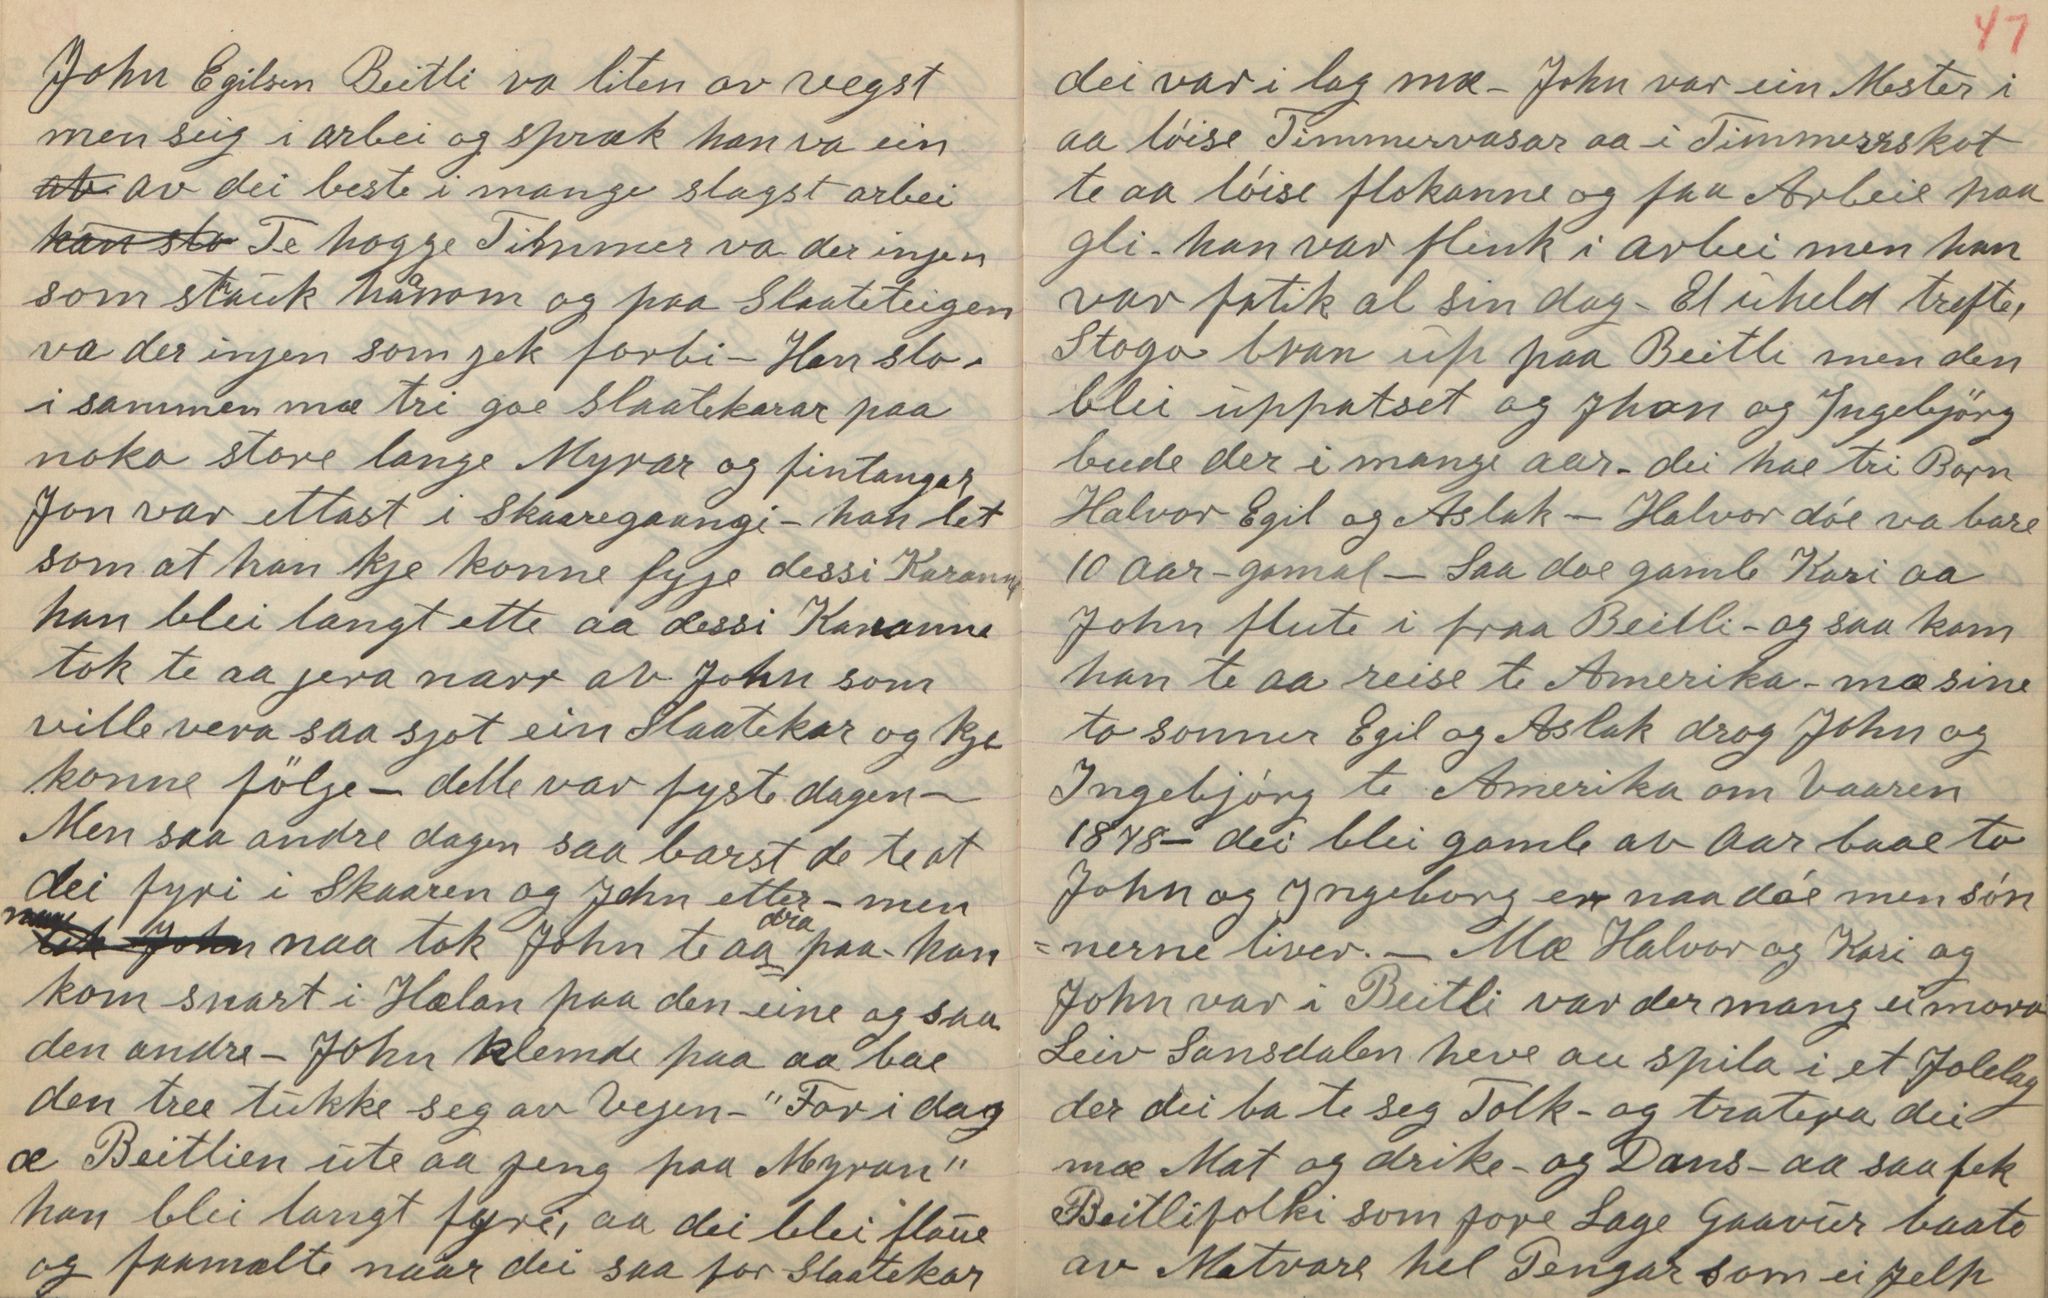 John Egilsen Beitli va liten av vegst
men seig i arbei og spræk han va ein
av av dei beste i mange slagst arbei
han slo Te hogge Timmer va der injen
som strauk hånom og paa Slaateteigen
va der injen som jek forbi – Han slo
i sammen mæ tri goe Slaatekarar paa
noko store lange Myrar og fintangar
Jon var ettast i Skaaregaangi – han let
som at han kje konne fyje dessi Karanne
han blei langt ette aa dessi Karanne
tok te aa jera narr av John som
ville vera saa sjot ein Slaatekar og kje
konne fölge – dette var fyste dagen –
Men saa andre dagen saa barst de te at
dei fyri i Skaaren og John etter – men
naa
tok John naa tok John te aa dra paa – han
kom snart i Hælan paa den eine og saa
den andre – John klemde paa aa bae
den tree tukke seg av Vejen – "For i dag
æ Beitlien ute aa jeng paa Myran"
han blei langt fyri, aa dei blei flaue
og faamælte naar dei saa for Slaatekar
47
dei var i lag mæ – John var ein Mester i
aa lóise Timmervasar aa i Timmerskot
te aa lóise flokanne og faa Arbeie paa
gli – han var flink i arbei men han
var fatik al sin dag – Et uheld trefte,
Stogo bran up paa Beitli men den
blei uppatset og Jhon og Ingebjörg
bude der i mange aar – dei hae tri Born
Halvor Egil og Aslak – Halvor dóe va bare
10 Aar – gamal – Saa doe gamle Kari aa
John flute i fraa Beitli – og saa kom
han te aa reise te Amerika – mæ sine
to sonner Egil og Aslak drog John og
Ingebjórg te Amerika om Vaaren
1878 – dei blei gamle av Aar baae to
John og Ingeborg er naa dóe men són
=nerne liver. – Mæ Halvor og Kari og
John var i Beitli var der mang ei moro
Leiv Sansdalen heve au spila i et Jolelag
der dei ba te seg Folk – og tratera dei
mæ Mat og drike – og Dans – aa saa fek
Beitlifolki som jore Lage Gaavur baate
av Matvare hel Pengar som ei jelp